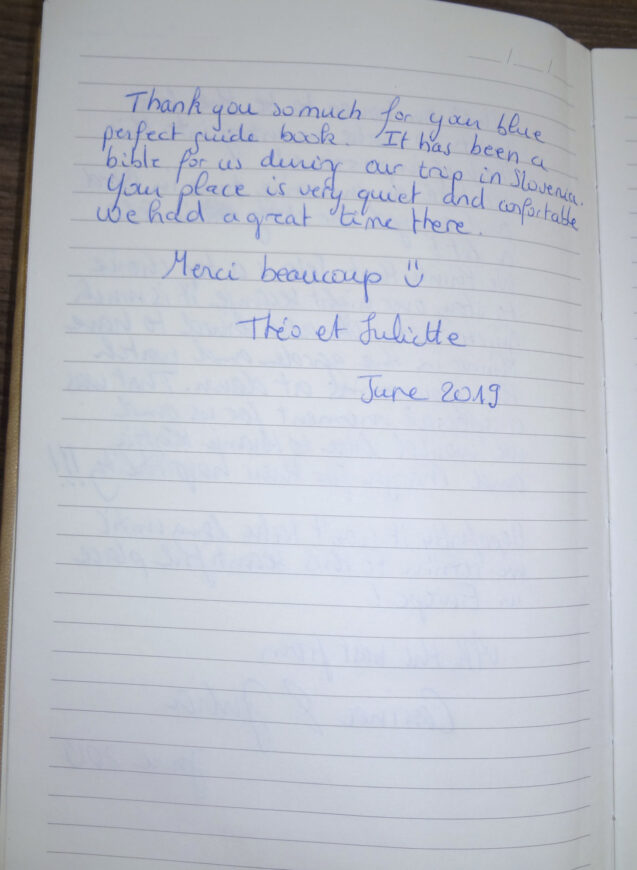 Thank you so much for your blue
perfect guide book. It has been a
bible for us during our trip in Slovenia.
Your place is very quiet and confortable
we had a great time there.
Merci beaucoup
Théo et Juliette
June 2019